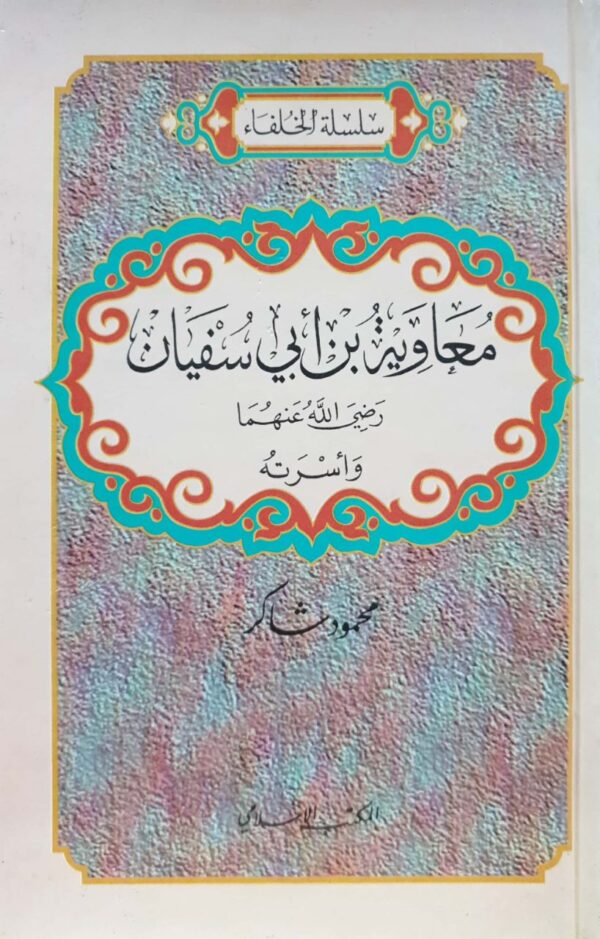 سلسلة الخلفاء
مُعَاوِيَةُ بن أبي سُفيَان
رَضِيَ اللَّهُ عَنهُمَا
وَأسْرَتهُ
محمود شاكر
المكتب الإسلامي